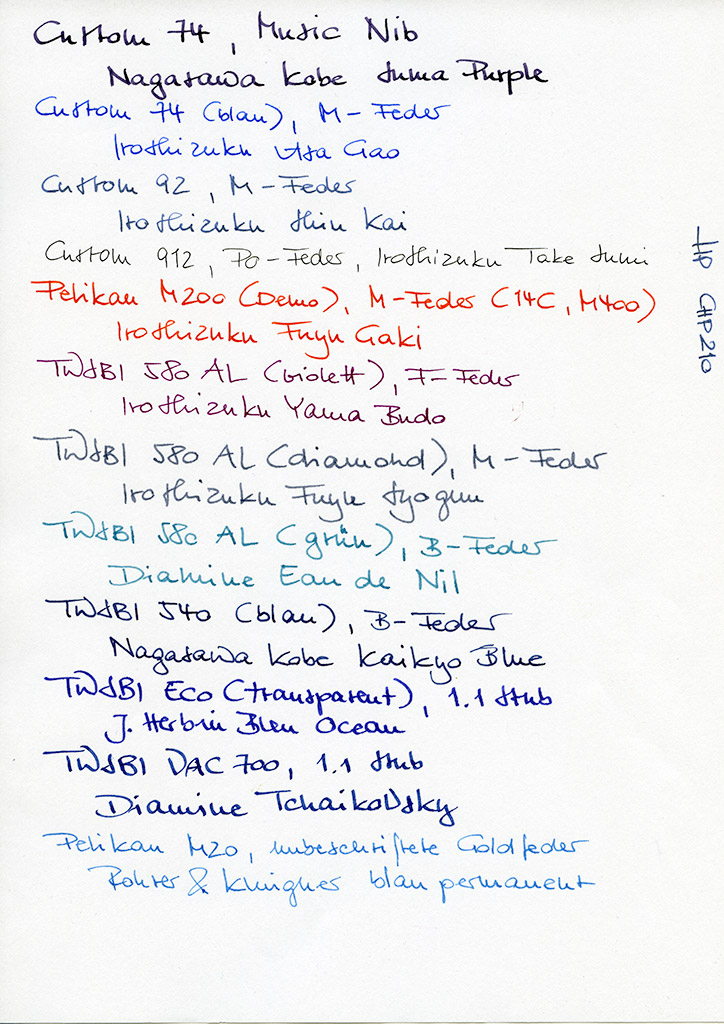 Custom 74, Music Nib
Nagasawa Kobe Suma Purple
Custom 74 (blau), M-Feder
Iroshizuku Asa Gao
Custom 92, M-Feder
Iroshizuku Shin Kai
Custom 912, Po-Feder, Iroshizuku Take Sumi
Pelikan M200 (Demo), M-Feder (14C, M400)
Iroshizuku Fuyu Gaki
TWSBI 580 AL (violett), F-Feder
Iroshizuku Yama Budo
TWSBI 580 AL (diamond), M-Feder
Iroshizuku Fuyu Syogun
TWSBI 580 AL (grün), B-Feder
Diamine Eau de Nil
TWSBI 540 (blau), B-Feder
Nagasawa Kobe Kaikyo Blue
TWSBI Eco (transparent), 1.1 Stub
J. Herbin Bleu Ocean
TWSBI VAC 700, 1.1 Stub
Diamine Tchaikovsky
Pelikan M20, unbeschriftete Goldfeder
Rohrer & Klingner blau permanent
HP CHP210